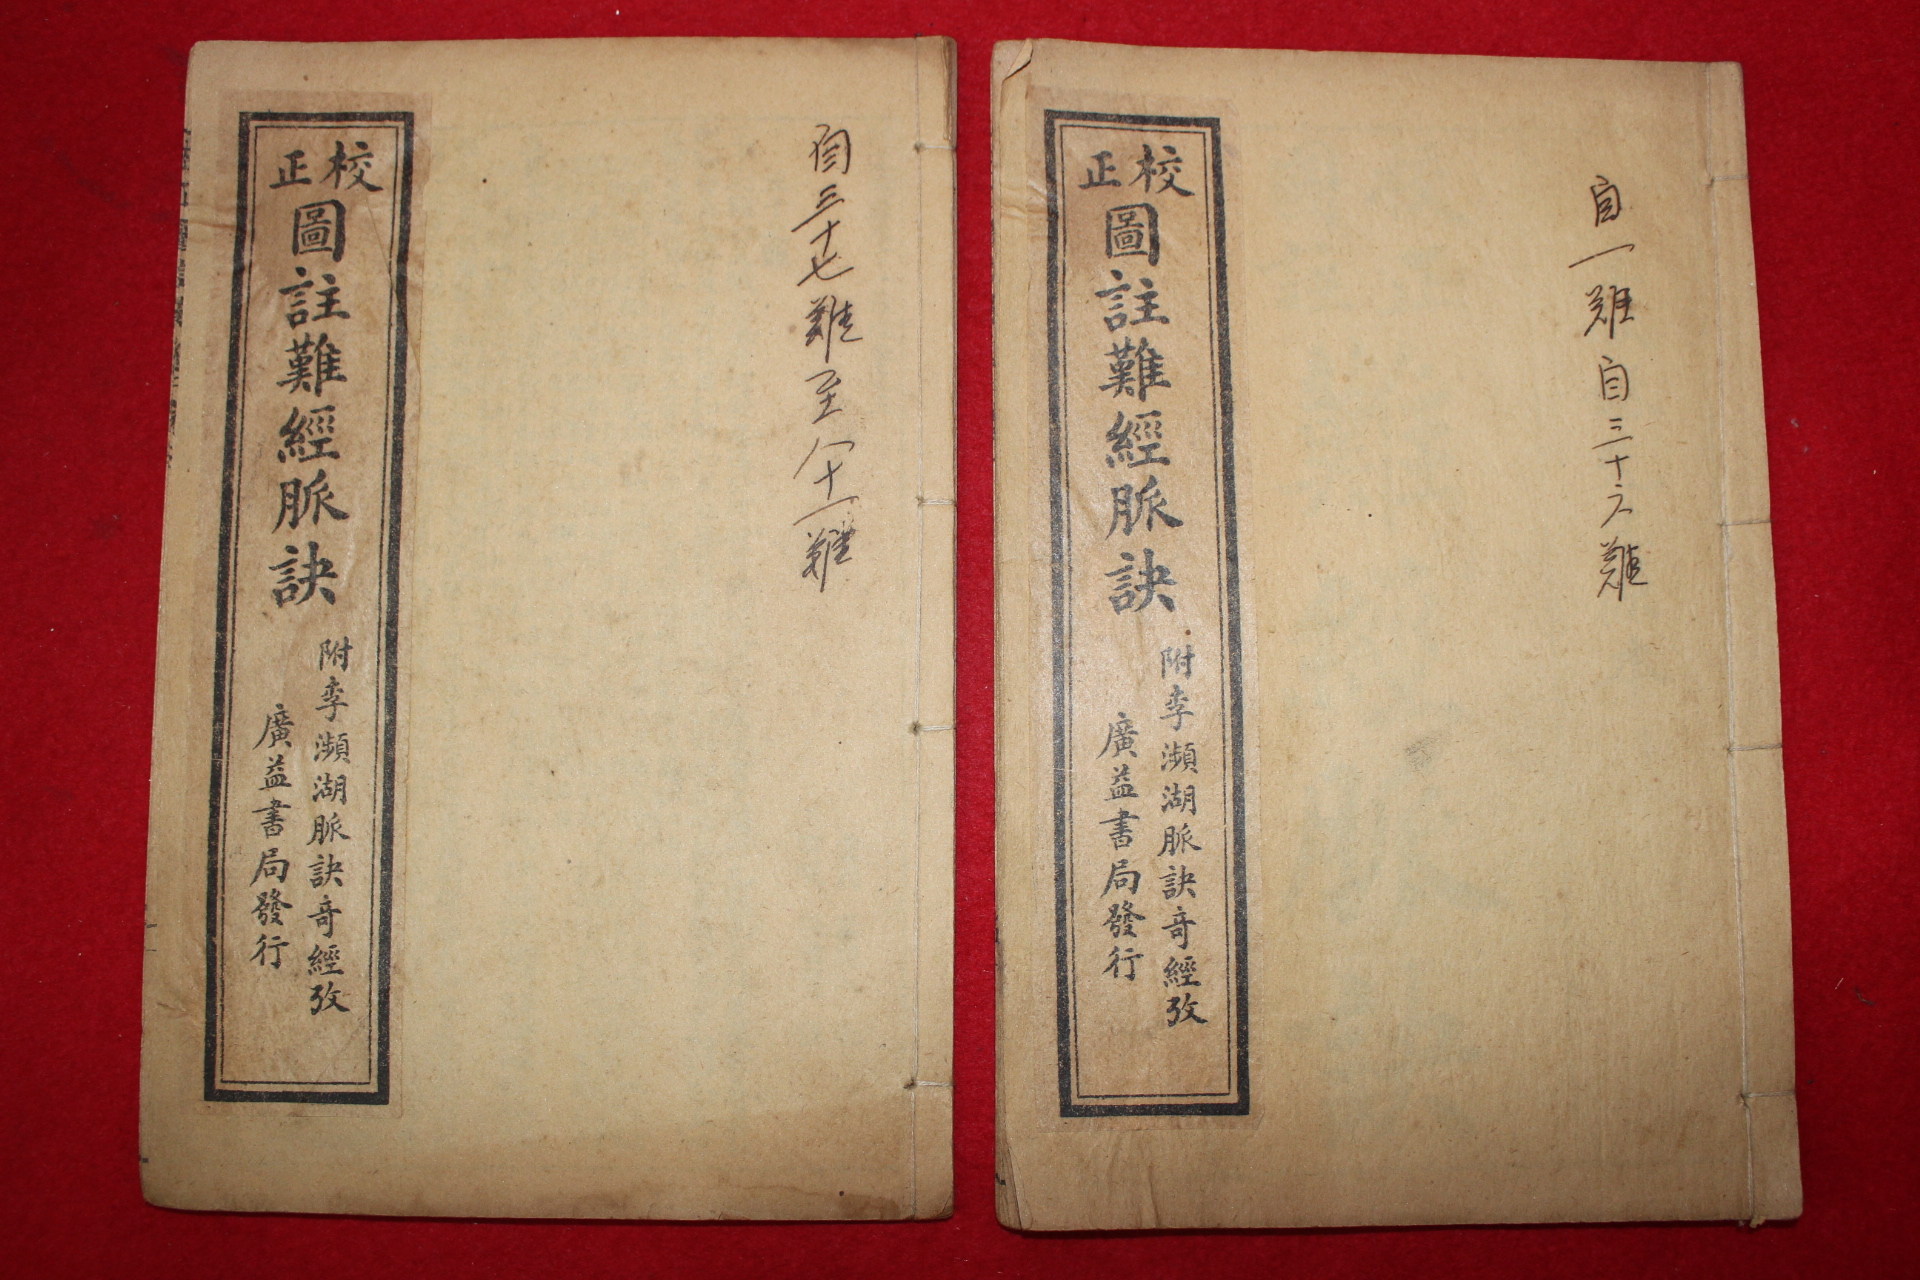 校正
圖註難經脈訣
附李瀕湖脈訣奇經攷
廣益書局發行
自三十七難至八十一難
校正
圖註難經脈訣
附李瀕湖脈訣奇經攷
廣益書局發行
自一難自三十六難